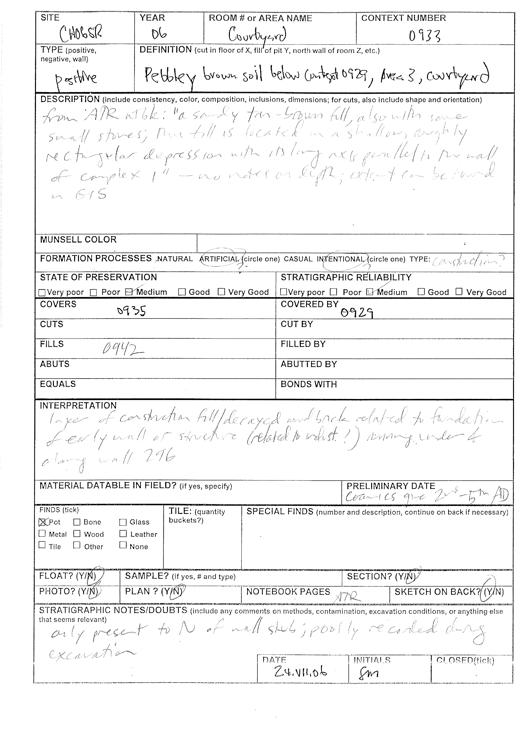 SITE YEAR ROOM # or AREA NAME CONTEXT NUMBER
CHOBSR 06 Courtyard 0933
TYPE (positive, negative, wall) DEFINITION (cut in floor of X, fill of pit Y, north wall of room Z, etc.)
positive Pebbley brown soil below Context 0929, Area 3, courtyard
DESCRIPTION (include consistency, color, composition, inclusions, dimensions; for cuts, also include shape and orientation)
from ATR ntbk: "a sandy tan-brown fill, also with some
small stones; this fill is located in a shallow, roughly
rectangular depression with its long axis parallel to the wall
of complex 1" – no notes on depth; extent can be found
in GIS
MUNSELL COLOR
FORMATION PROCESSES NATURAL ARTIFICIAL (circle one) CASUAL INTENTIONAL (circle one) TYPE: construction?
STATE OF PRESERVATION STRATIGRAPHIC RELIABILITY
Very poor Poor Medium Good Very Good Very poor Poor Medium Good Very Good
COVERS 0935 COVERED BY 0929
CUTS CUT BY
FILLS 0942 FILLED BY
ABUTS ABUTTED BY
EQUALS BONDS WITH
INTERPRETATION
layer of construction fill/decayed mudbrick related to foundation
of early wall or structure (related to !) running under &
along wall 296
MATERIAL DATABLE IN FIELD? (if yes, specify) PRELIMINARY DATE
Ceramics give 2nd-5th AD
FINDS (tick) TILE: (quantity buckets?) SPECIAL FINDS (number and description, continue on back if necessary)
Pot Bone Glass
Metal Wood Leather
Tile Other None
FLOAT? (Y/N) SAMPLE? (if yes, # and type) SECTION? (Y/N)
PHOTO? (Y/N) PLAN? (Y/N) NOTEBOOK PAGES ATR SKETCH ON BACK? (Y/N)
STRATIGRAPHIC NOTES/DOUBTS (include any comments on methods, contamination, excavation conditions, or anything else
that seems relevant)
only present to N of wall stub; poorly recorded during
excavation
DATE INITIALS CLOSED(tick)
24.VII.06 SM